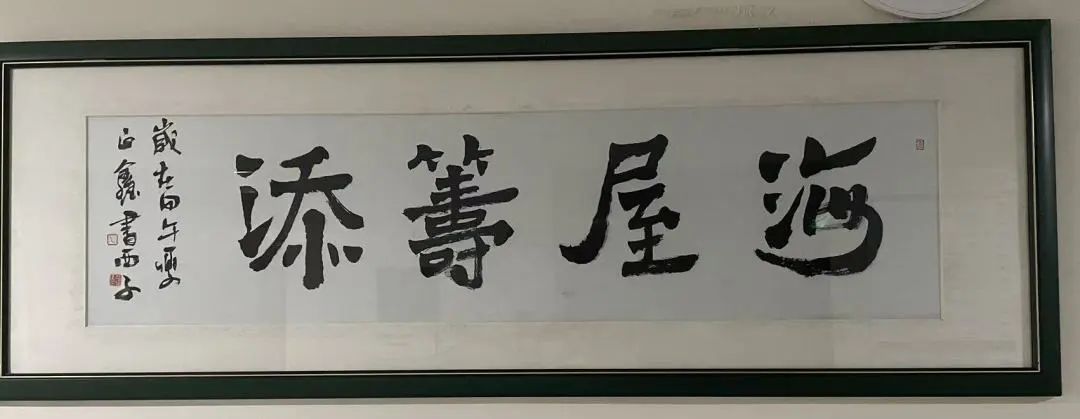 海屋籌添
歲在甲午夏
正鑫書西子